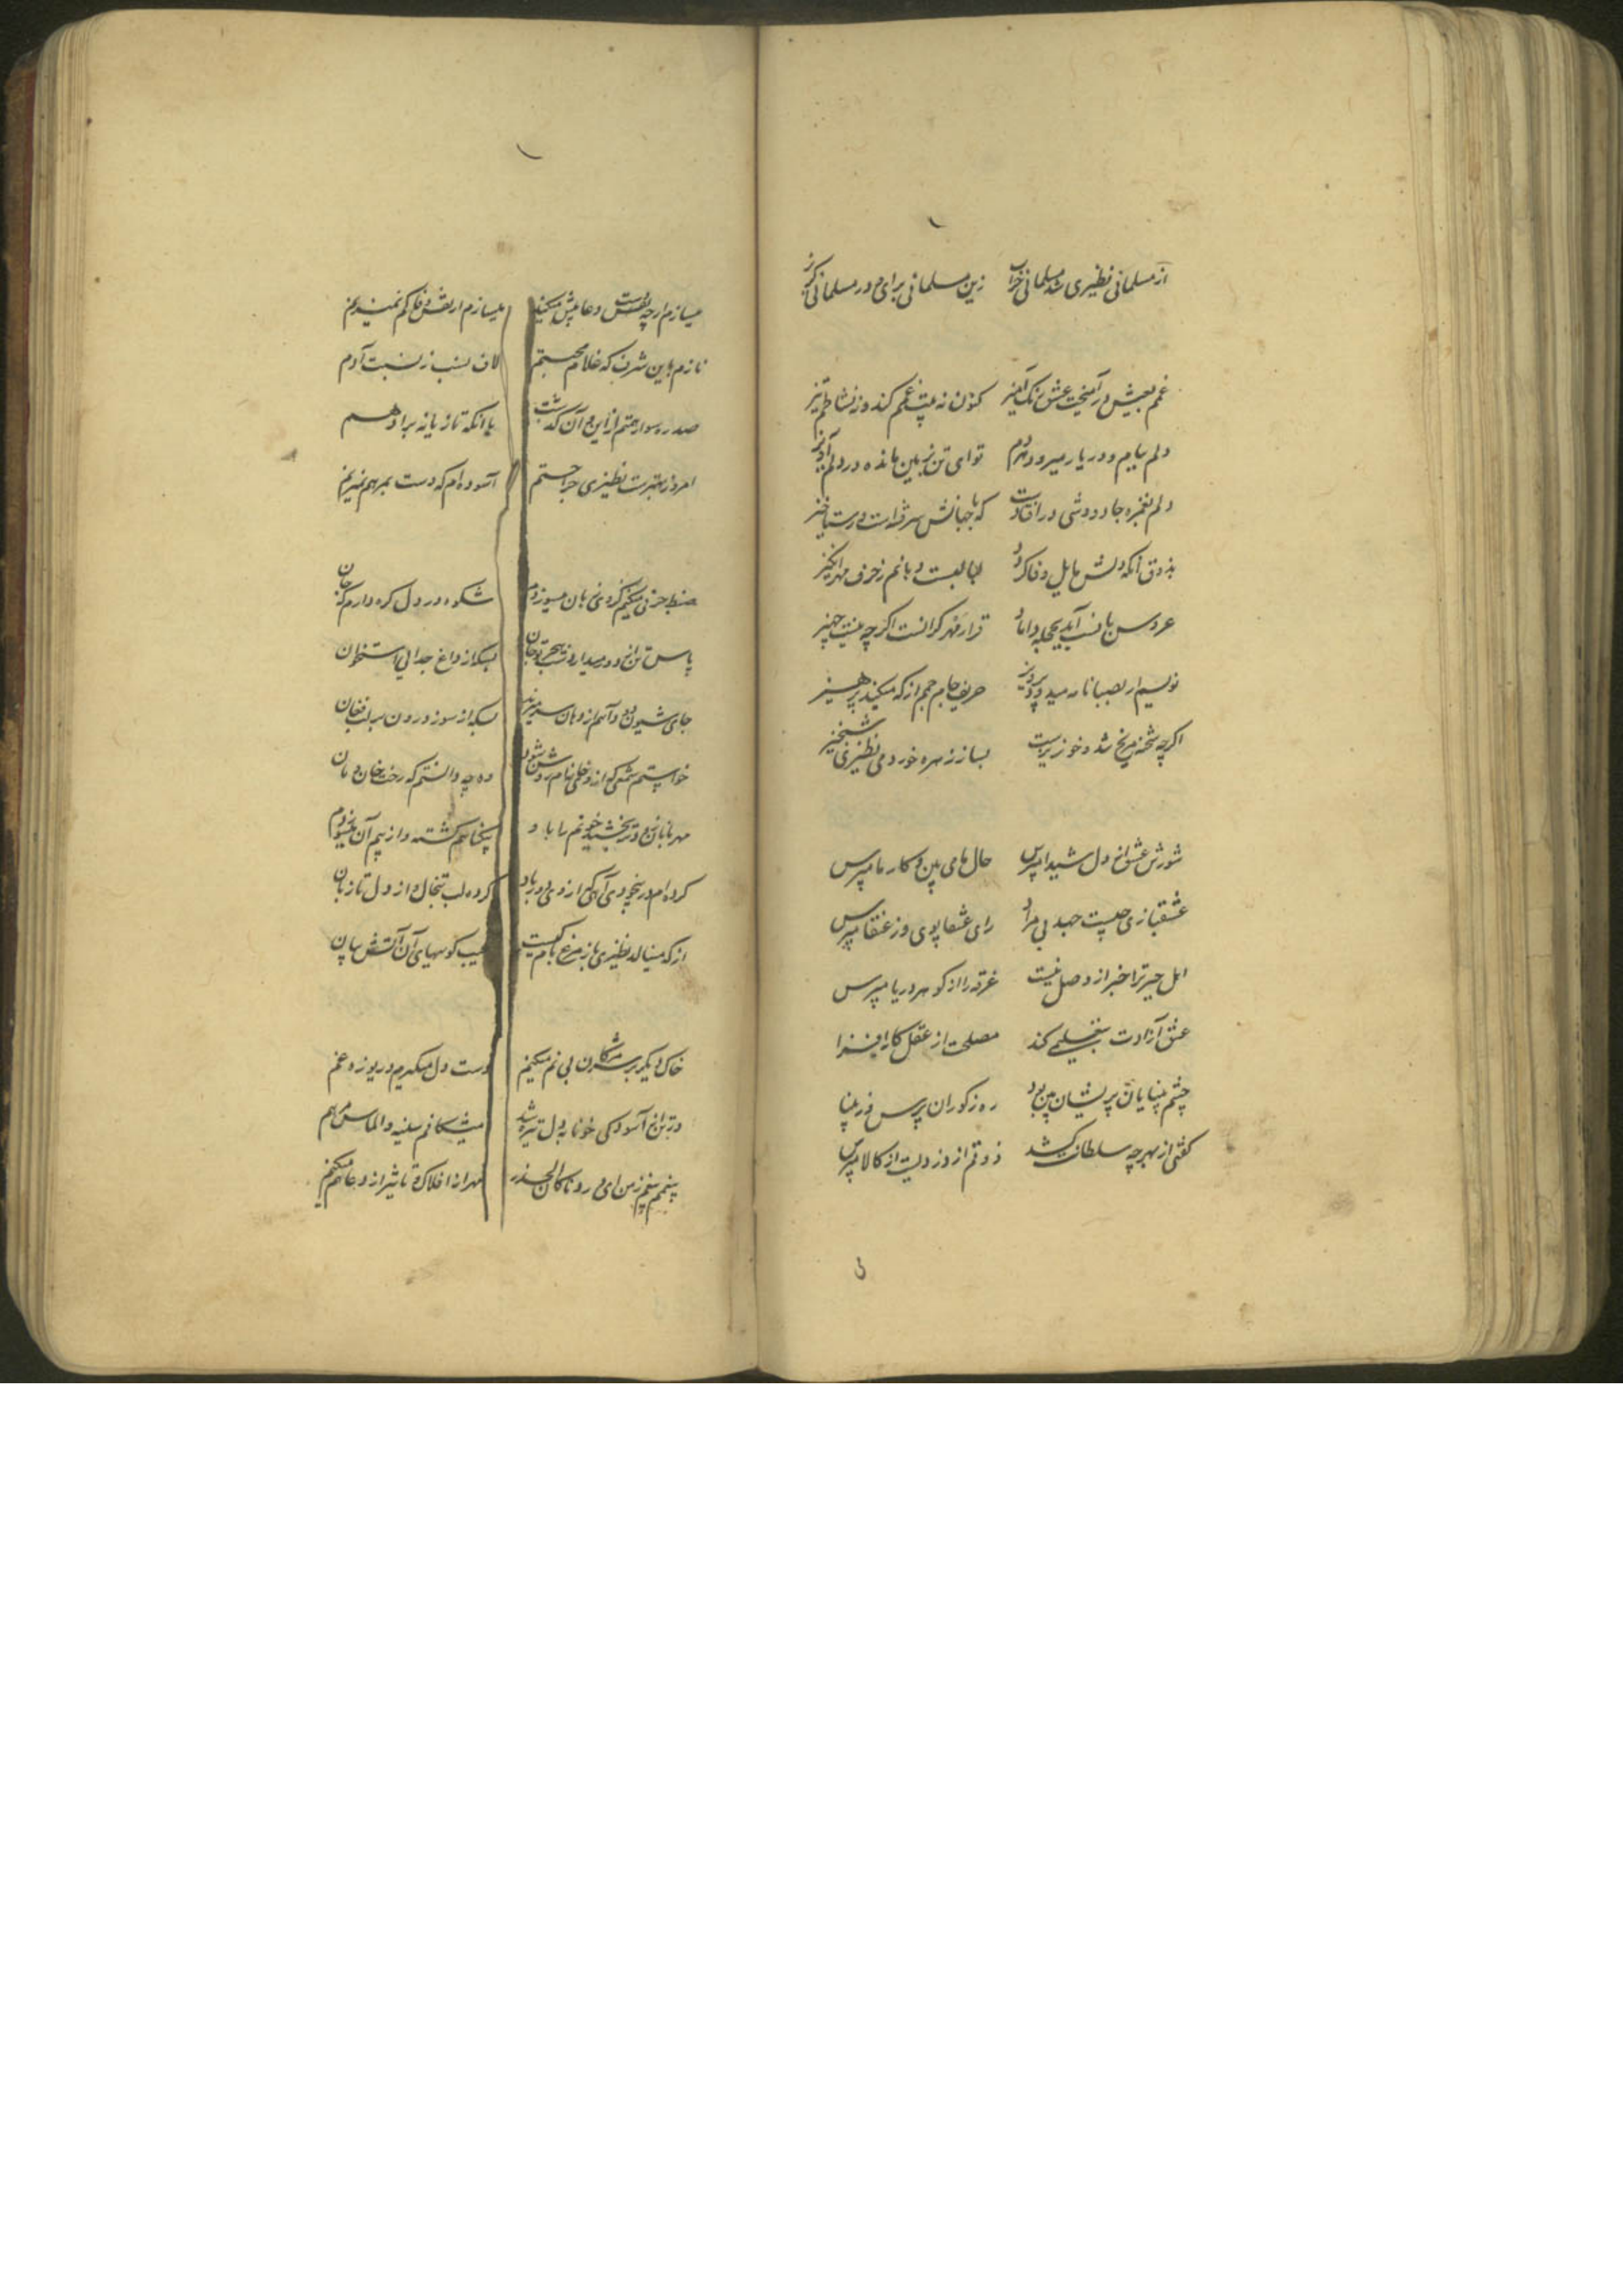 از مسلمانی نظیری شد مسلمانی خراب زین مسلمانی برای و در مسلمانی گریز
غم بعیش درآمیخت عشق رنگ آمیز کنون نه پیت غمم کند و ز نشاطم تیز
دلم بیام و در یار میرود هردم تو ای تن زمین مانده در دلم آویز
دلم بغمزه جادووشی در افتادست که با جهانش سر فتنه است و رستاخیز
بذوق آنکه دلش مایل وفا گردد لبالبست دهانم ز حرف مهرانگیز
عروس ما نسب آید بحجله داماد قرار مهر گرانست اگر چه نیست جهیز
نویسم ار بصبا نامه میدود پرویز حریف جام جم از که میکند پرهیز
اگر چه شحنه مریخ شد و خونریزست بساز زهره خورد می نظیری شبخیز
شورش عشق از دل شیدا مپرس حال ما می بین و کار ما مپرس
عشقبازی چیست صید بی مراد رای عنقا پوی وز عنقا مپرس
اهل حیرت را خبر از وصل نیست غرقه را از گوهر دریا مپرس
عشق آزادت بتعجیلی کند مصلحت از عقل کارافزا
چشم بینایان پریشان بین بود ره ز کوران پرس وز بینا
گفتی از بهر چه سلطانت کشد ذوقم از دزدیست از کالا مپرس
میسازم ار چه نقش دعا پیش میکنید میسازم از نقش فلکم نمیزیم
نازم باین شرف که غلام محبتم لاف نسب ز نسبت آدم
صد ره سوار هستم از این و آن گذشت با آنکه تازیانه بر ادهم
امروز بهترست نظیری جراحتم آسوده ام که دست بمرهم نمیزنم
ضبط حرفی میکنم کز وی زبان میسوزدم شکوه در دل گره دارم که جان
پاس تن از دود میدارد شب هجر تو جان بسکه از داغ جدایی استخوان
جای شیون دود آهم از دهان سر میزند بسکه از سوز درون بر لب فغان
خواستم شمعی که از وی خانمانم روشن شود وه چه دانستم که رخت خان و مان
مهربانان زود تر بخشید خونم را باو بیگناهم کشته و از بیم آن میسوزدم
کرده ام در بیخودی آهی گر از وی دور باد کرده لب تبخال و از دل تا زبان
از که مینالد نظیری باز مرغ بام کیست عیب گوییهای آن آتش بیان
خاک دیگر بر سر مژگان بی نم میکنم دست دل میگیرم و دریوزه غم
در تن از آسودگی خونابه دل تیره شد میشکافم سینه و الماس مرهم
پنجم پنجم زمن ای روناکان الحذر مهر از افلاک و تاثیر از دعا کم میکنم